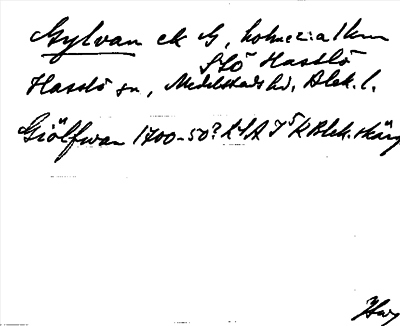 Gylvan ek G, holme i allm
StÖ Hasslö
Hasslö sn, Medelstads hd, Blek. l.
Giölfwan 1700-50? KrA I 5 k Blek. skärg